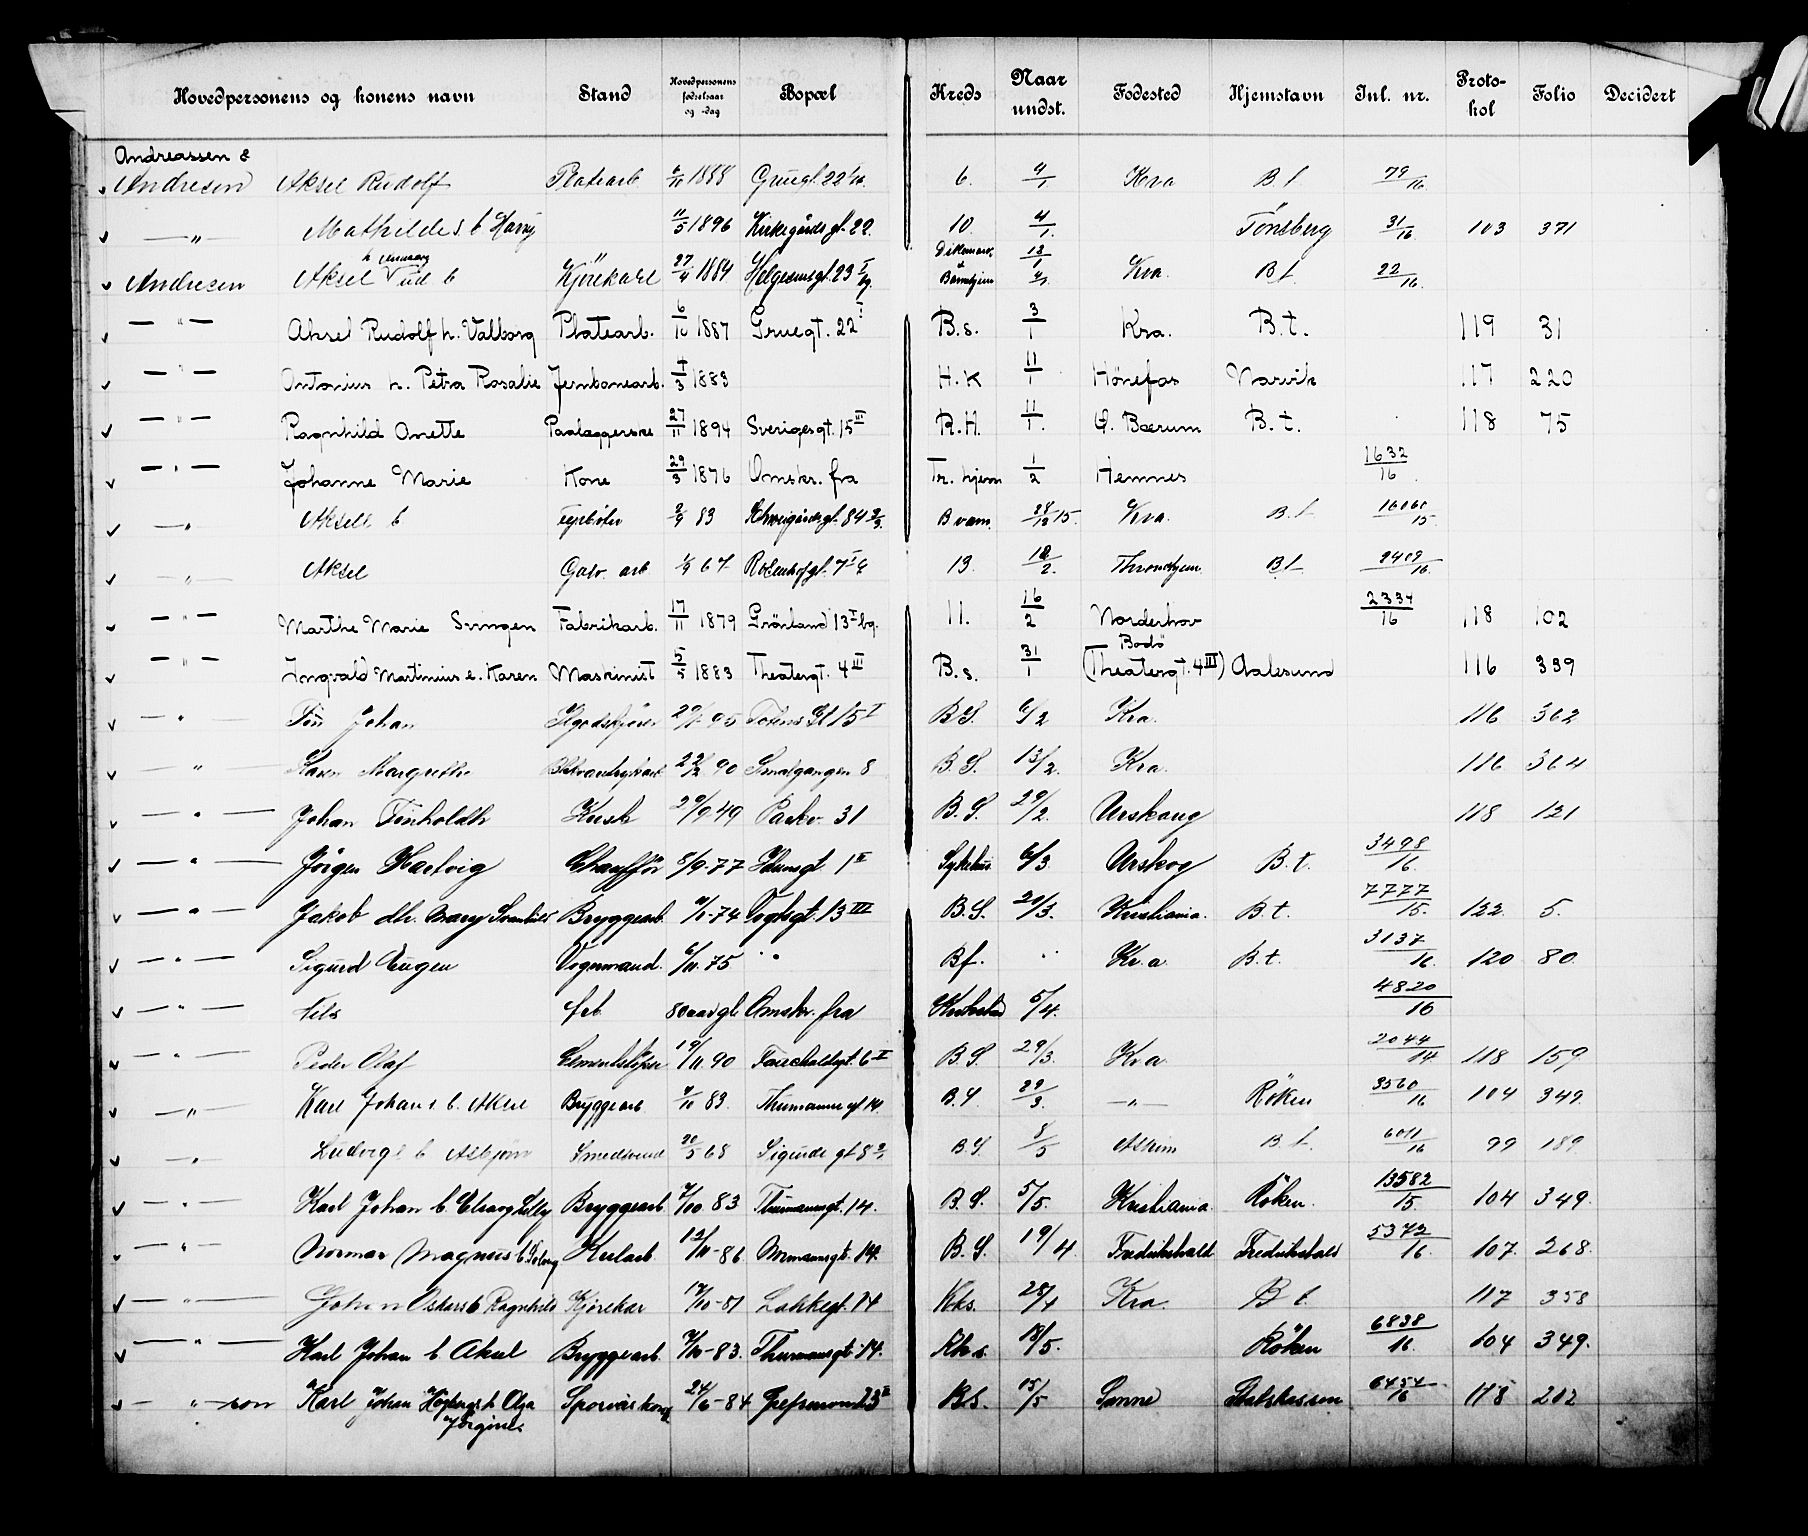 Hovedpersonens og konens navn Stand Hovedpersonens fødselsaar og -dag Bopæl Kreds Naar undst. Fødested Hjemstavn Inl. nr. Proto-kol Folio Decidert
Andreassen &
Andresen Aksel Rudolf Platearb 6/11 1888 Gruegt. 22 6. 4/1 Kra B.t. 79/16
— " — Mathilde s. b Harry 11/5 1896 Kirkegårdsgt. 22. 10. 4/1. Tönsberg 31/16. 103 371
Andresen Aksel ud b Kjörekarl 27/4 1884 Helgesensgt. 23 I Dikemark & Barnehjem 12/1 4/1 Kra. B.t. 22/16.
— " — Aksel Rudolf h. Valborg Platearb. 6/10 1887 Gruegt. 22 B.s. 3/1 Kra. B.t. 119 31
— " — Antonius h. Petra Rosalie Jernbanearb. 4/3 1883 H.K 11/1 Hönefos Narvik 117 220
— " — Ragnhild Anette Paalæggerske 27/11 1894 Sverigesgt. 15 III R.H. 11/1. Ø. Bærum B.t. 118 75
— " — Johanne Marie Kone 29/3 1876 Omskr. fra Tr. hjem 1/2 Hemnes 1632/16
— " — Aksell b Fyrböter 2/9 83 Schweigårdsgt. 84 2/3. B vam. 28/12 15. Kra. B.t 16060/15
— " — Aksel Galv. arb 1/9 67 Rosenhofgt. 7 I 13. 18/2. Throndhjem B.t. 2409/16.
— " — Marthe Marie Svingen Fabrikarb. 17/11 1879 Grönland 13 I bg. 11. 16/2 Norderhov 2334/16 118 102
— " — Ingvald Martinius e. Karen Maskinist 5/5 1883 Theatergt. 4 III B.s. 31/1 Bodö (Theatergt. 4 III) Aalesund 116 339
— " — Finn Johan 29/1-95 Totens Gt 15 I B.S. 6/2 Kra. 116 362
— " — Karen Margrethe 22/12 90 Smalgangen 8 B.S. 13/2. Kra. 116 364
— " — Johan Finholdth Kusk 29/9 49 Parkv. 31 B.S. 29/2. Urskoug 118 121
— " — Jörgen Hartvig Chaufför 5/9-77 1 II Sykehus 6/3 Urskog B.t. 3498/16.
— " — Jakob dtr. Mary Svanhild Bryggearb. 9/1-74 Vogtsgt. 13 III B.S. 29/3. Kristiania. B.t. 7777/15. 122. 5.
— " — Sigurd Eugen Vognmand. 6/11 75 " Bf. " Kr.a B.t. 3137/16. 120 80.
— " — Nils Arb 80 aar gl Omskr. fra Krohstad 5/4. 4820/16
— " — Peder Olaf Cementstöper 19/11 90 6 I B.S. 29/3. Kra 2044/14 118 159.
— " — Karl Johan s. b. Aksel Bryggearb 7/10 83. Thurmanns gt 14. B.S 29/3. — " — Röken 3560/16 104 349.
— " — Ludvig b Asbjörn Smedsvend 20/5 68 Sigurds gt 8 B.S. 8/5 Askim B.t. 6011/16 99 189
— " — Karl Johan b Elvarg Lilly Bryggearb 7/10 83 Thurmannsgt. 14. B.S. 5/5. Kristiania Röken. 13582/15. 104 349.
— " — Normar Magnus b. Solveig Kularb 12/11-86. Normannsgt. 14. B.S. 19/4 Fredrikshald Fredrikshald 5372/16. 107 268.
— " — Johan Oskar s b Ragnhild Kjörekar 17/10-81 Lakkegt. 14 Kks. 28/4 Kra. B t. 117 358
— " — Karl Johan b Aksel Bryggearb. 7/10-83. Thurmannsgt. 14. Kks. 18/5. Röken 6838/16. 104 349.
— " — son Karl Johan Högberg h Olga Jörgine. Sporveiskonf 24/6-84 Grefsenveien 23 II B.S. 15/5 Sanne Statskassen 6454/16 118 202